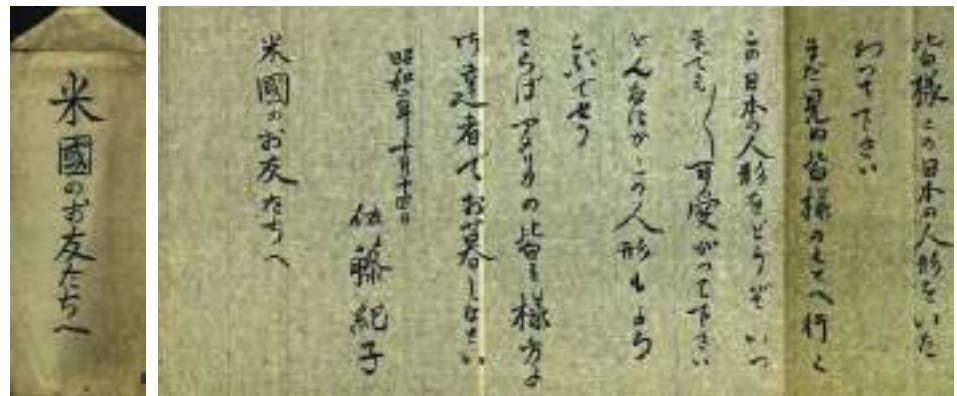 米國のお友たちへ
皆様この日本の人形をいた
わつて下さい
まだ見ぬ皆様のもとへ行く
この日本の人形をどうぞいつ
までも〳〵可愛がつて下さい
どんなにかこの人形もよろ
こぶでせう
さらばアメリカの皆々様方よ
御達者でお暮しなさい
昭和二年十月十四日
佐藤紀子
米國のお友たちへ